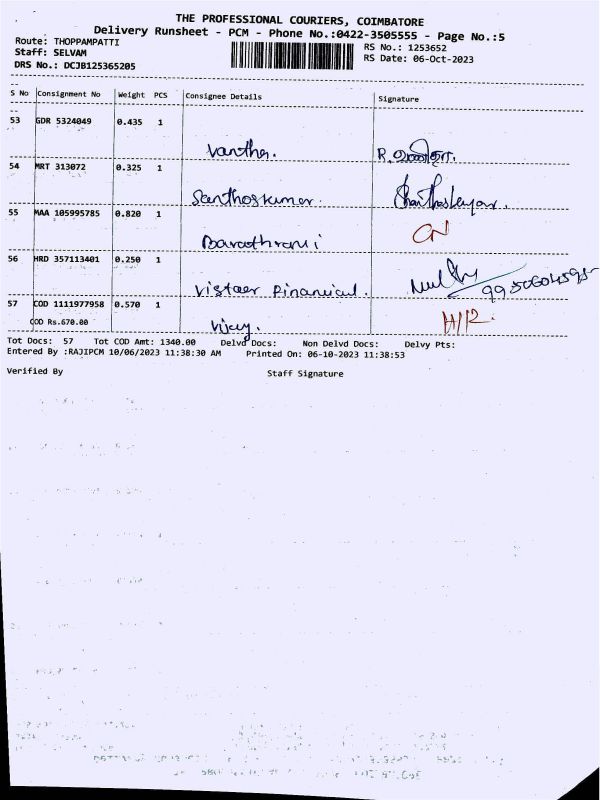 THE PROFESSIONAL COURIERS, COIMBATORE
Delivery Runsheet - PCM - Phone No.:0422-3505555 - Page No.:5
Route: THOPPAMPATTI
Staff: SELVAM
DRS No.: DCJB125365205
RS No.: 1253652
RS Date: 06-Oct-2023
S No Consignment No Weight PCS Consignee Details Signature
53 GDR 5324049 0.435 1
Vanitha. R.
54 MRT 313072 0.325 1
Santhoskumar
55 MAA 105995785 0.820 1
Barathrani CN
56 HRD 357113401 0.250 1
Vistaar Financial.
57 COD 1111977958 0.570 1
COD Rs.670.00
Vijay. H/12.
Tot Docs: 57 Tot COD Amt: 1340.00 Delvd Docs: Non Delvd Docs: Delvy Pts:
Entered By :RAJIPCM 10/06/2023 11:38:30 AM Printed On: 06-10-2023 11:38:53
Verified By Staff Signature